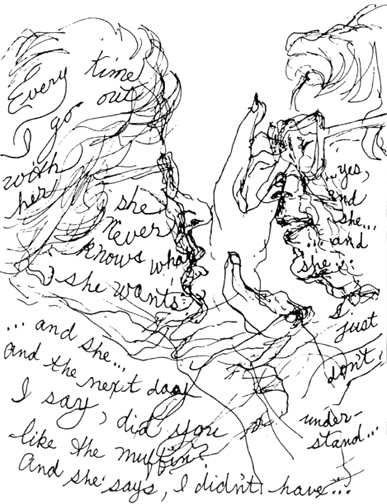 Every time
I go out
with
her
she
never
knows what
she wants
... and she...
and the next day
I say, did you
like the muffin?
And she says, I didn't have...
...yes,
and
she...
... and
she...
I
just
don't
under-
stand...